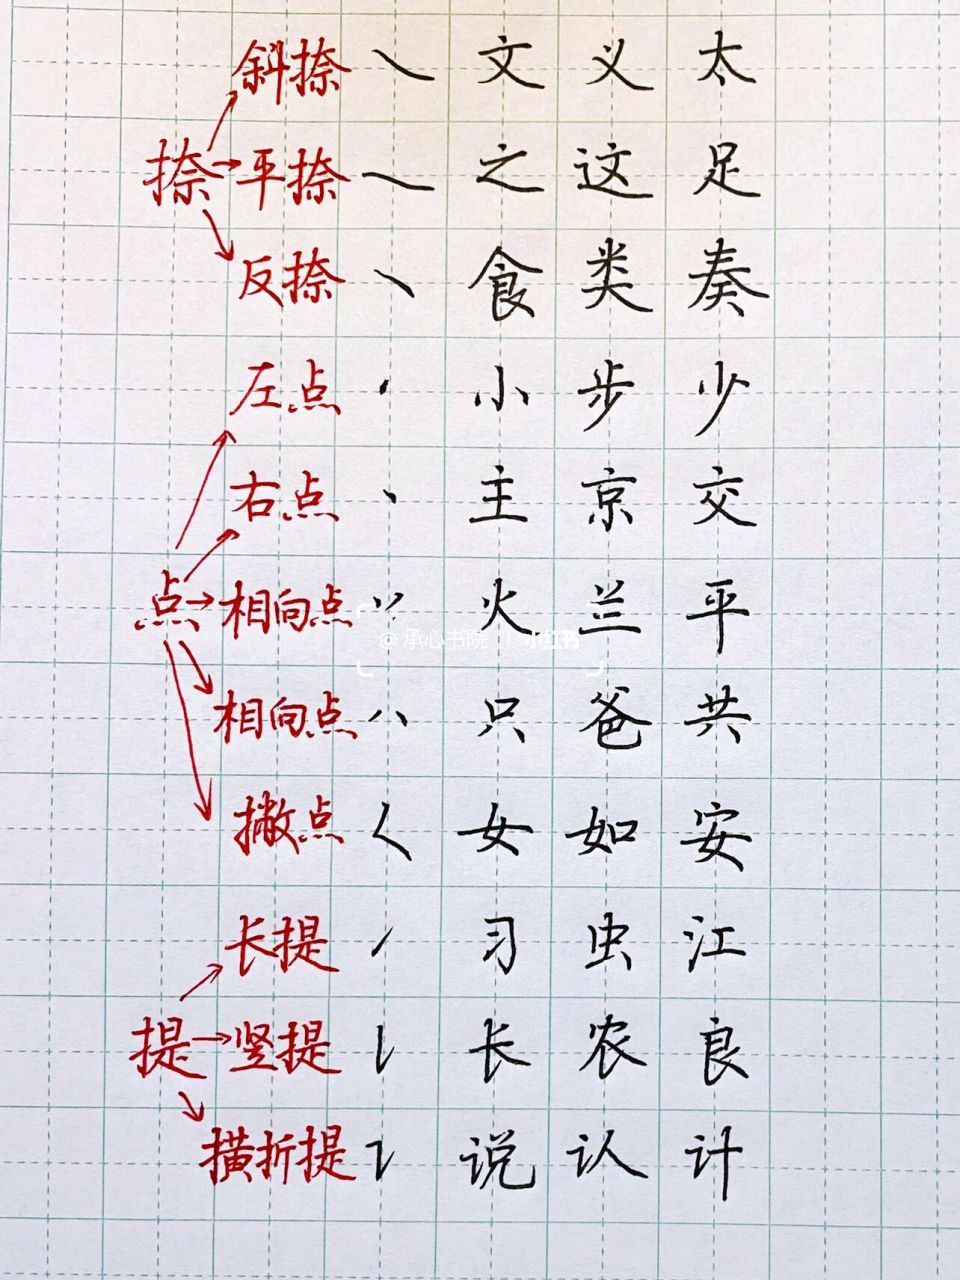 斜捺 ㇏ 文 义 太
捺 平捺 ㇏ 之 这 足
反捺 ㇔ 食 类 奏
左点 ㇒ 小 步 少
右点 ㇔ 主 京 交
点 相向点 丷 火 兰 平
@承心书院 小红书
相向点 八 只 爸 共
撇点 ㇛ 女 如 安
长提 ㇀ 习 虫 江
提 竖提 ㇙ 长 农 良
横折提 ㇊ 说 认 计